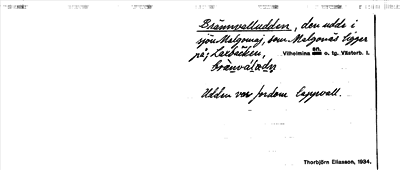 Brännvalludden, den udde i
sjön Malgomaj, som Malgonäs ligger
på; Laxbäcken, Vilhelmina sn. o. tg. Västerb. l.
Udden var fordom lappvall.
Thorbjörn Eliasson, 1934.